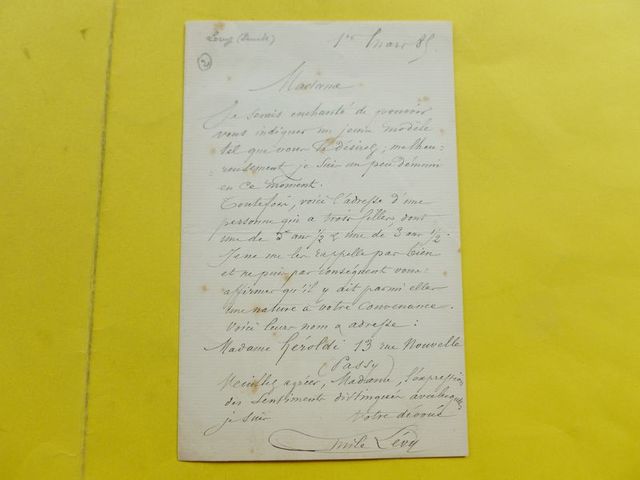 Levy (Emile)
2
1er Mars 85.
Madame
Je serais enchanté de pouvoir
vous indiquer un jeune modèle
tel que vous le désirez; malheu-
reusement je suis un peu démuni
en ce moment.
Toutefois, voici l'adresse d'une
personne qui a trois filles dont
une de 5 ans 1/2 & une de 3 ans 1/2.
Je ne me les rappelle pas bien
et ne puis par conséquent vous
affirmer qu'il y ait parmi elles
une nature à votre convenance.
Voici leur nom & adresse:
Madame Héroldi 13 rue Nouvelle
(Passy)
Veuillez agréer, Madame, l'expression
des sentiments distingués avec lesquels
je suis votre dévoué
Emile Lévy